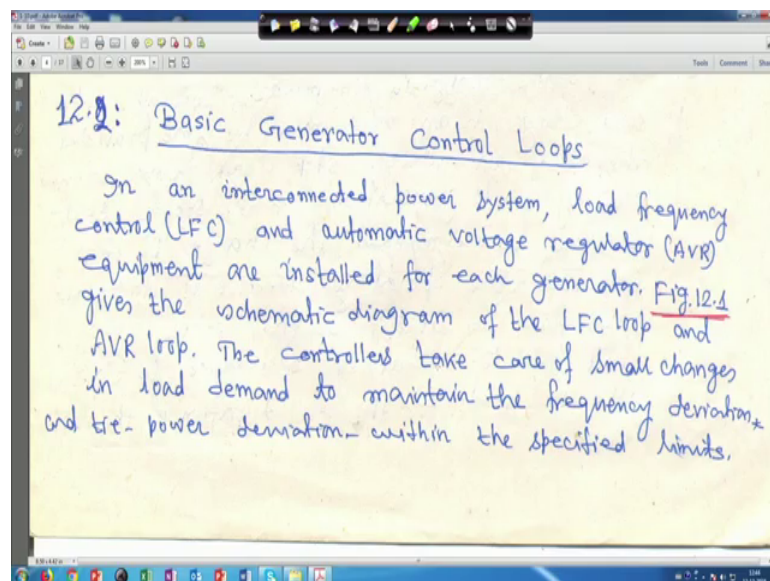 File Edit View Window Help
Create
4 / 17
200%
Tools Comment Share
12.2: Basic Generator Control Loops
In an interconnected power system, load frequency
control (LFC) and automatic voltage regulator (AVR)
equipment are installed for each generator. Fig.12.1
gives the schematic diagram of the LFC loop and
AVR loop. The controllers take care of small changes
in load demand to maintain the frequency deviation
and tie-power deviation within the specified limits.